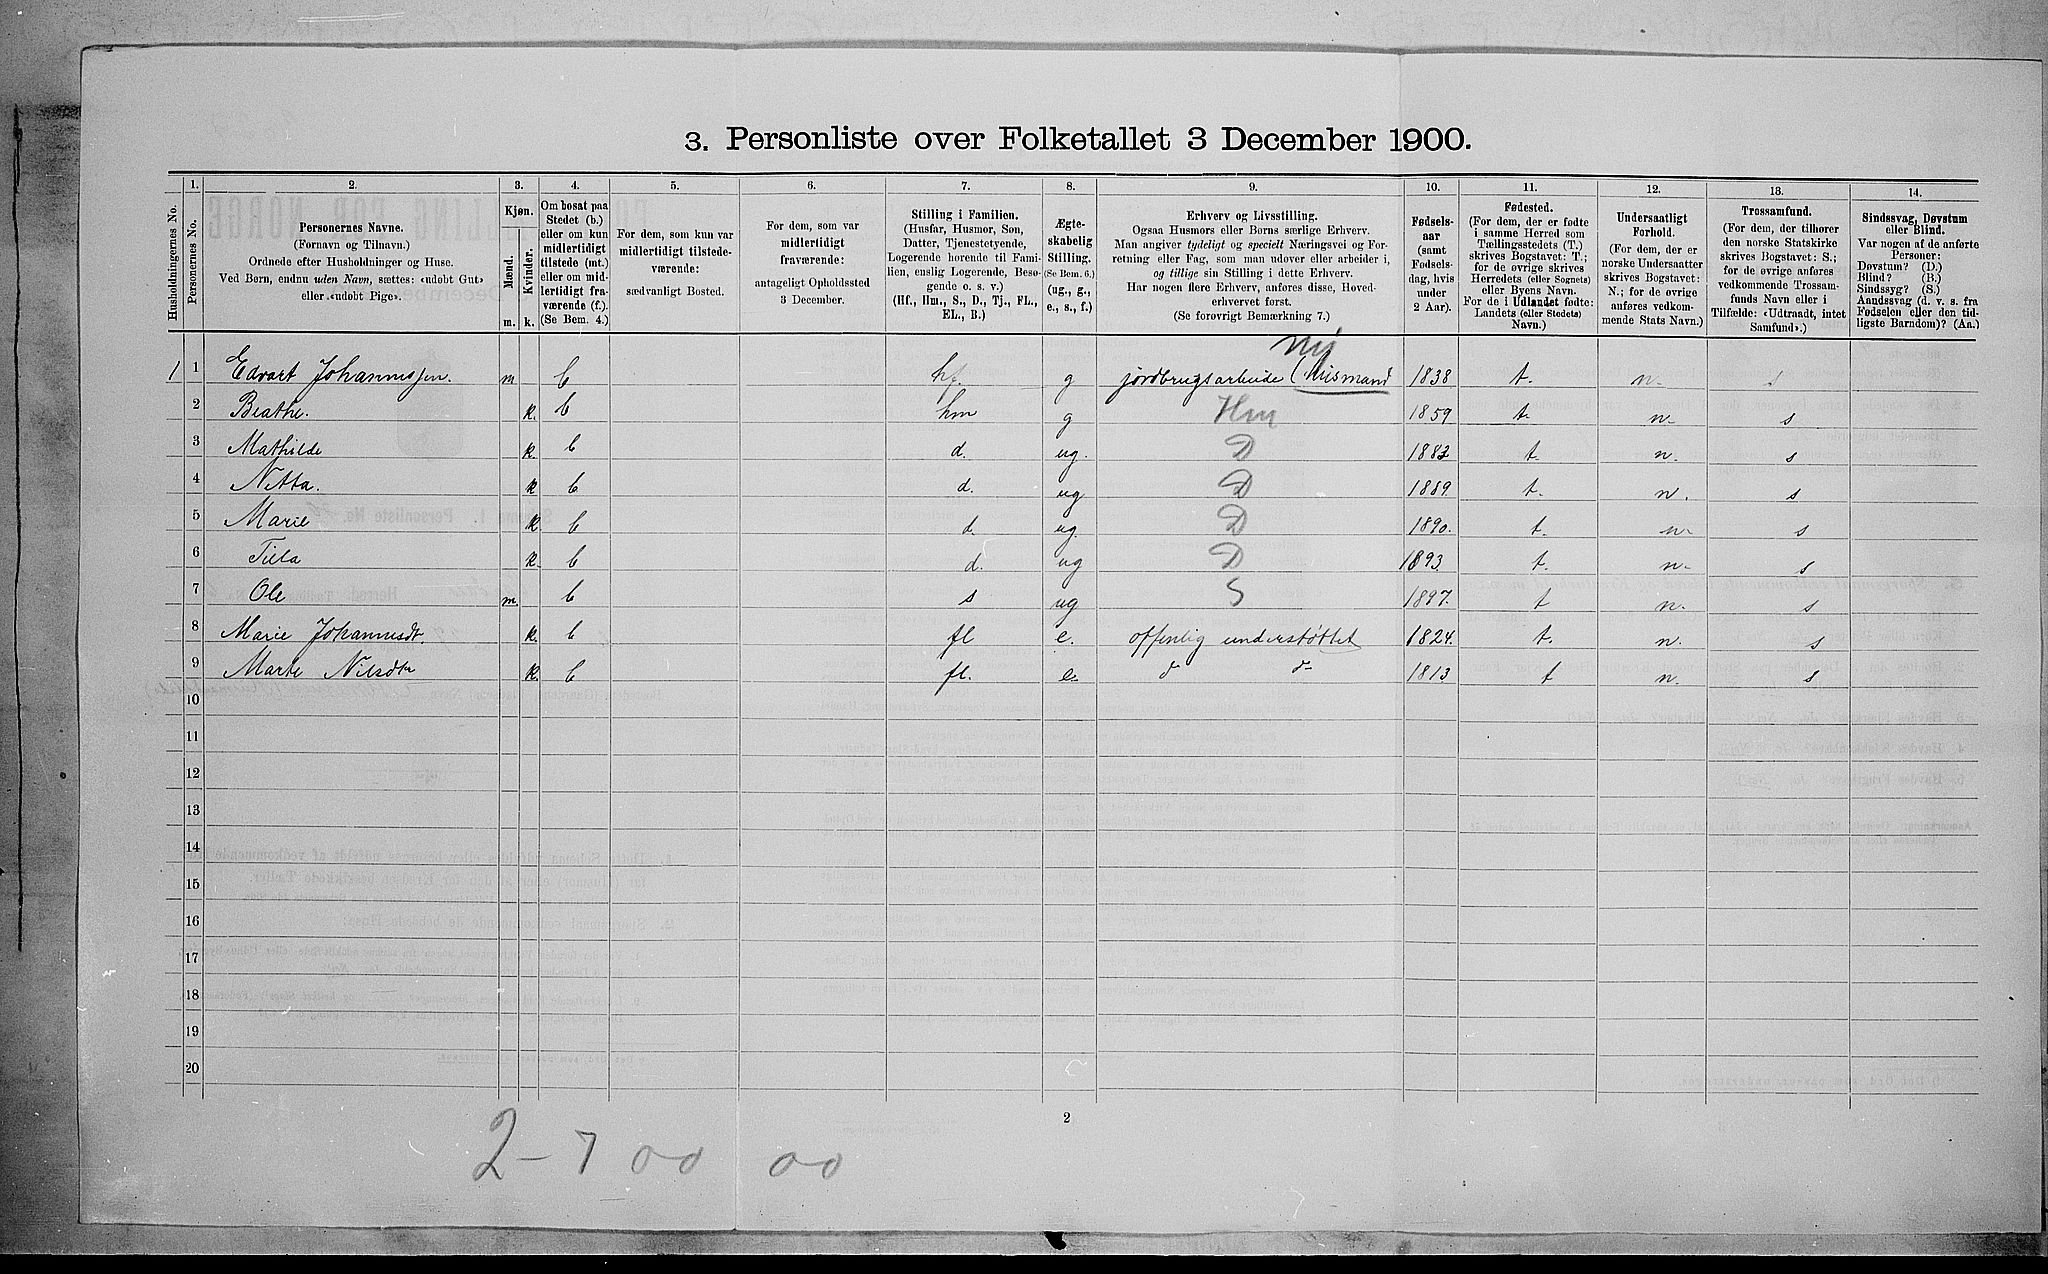 3. Personliste over Folketallet 3 December 1900.
Husholdningernes No.
1. Personernes No.
2. Personernes Navne.
(Fornavn og Tilnavn.)
Ordnede efter Husholdninger og Huse.
Ved Børn, endnu uden Navn, sættes: «udøbt Gut»
eller «udøbt Pige».
3. Kjøn.
Mænd. m.
Kvinder. k.
4. Om bosat paa
Stedet (b.)
eller om kun
midlertidigt
tilstede (mt.)
eller om mid-
lertidigt fra-
værende (f.)
(Se Bem. 4.)
5. For dem, som kun var
midlertidigt tilstede-
værende:
sædvanligt Bosted.
6. For dem, som var
midlertidigt
fraværende:
antageligt Opholdssted
3 December.
7. Stilling i Familien.
(Husfar, Husmor, Søn,
Datter, Tjenestetyende,
Logerende hørende til Fami-
lien, enslig Logerende, Besø-
gende o. s. v.)
(Hf., Hm., S., D., Tj., FL.,
EL., B.)
8. Ægte-
skabelig
Stilling.
(Se Bem. 6.)
(ug., g.,
e., s., f.)
9. Erhverv og Livsstilling.
Ogsaa Husmors eller Børns særlige Erhverv.
Man angiver tydeligt og specielt Næringsvei og For-
retning eller Fag, som man udøver eller arbeider i,
og tillige sin Stilling i dette Erhverv.
Har nogen flere Erhverv, anføres disse, Hoved-
erhvervet først.
(Se forøvrigt Bemærkning 7.)
10. Fødsels-
aar
(samt
Fødsels-
dag, hvis
under
2 Aar).
11. Fødested.
(For dem, der er fødte
i samme Herred som
Tællingsstedets (T.)
skrives Bogstavet: T.;
for de øvrige skrives
Herredets (eller Sognets)
eller Byens Navn.
For de i Udlandet fødte:
Landets (eller Stedets)
Navn.)
12. Undersaatligt
Forhold.
(For dem, der er
norske Undersaatter
skrives Bogstavet:
N.; for de øvrige
anføres vedkom-
mende Stats Navn.)
13. Trossamfund.
(For dem, der tilhører
den norske Statskirke
skrives Bogstavet: S.;
for de øvrige anføres
vedkommende Trossam-
funds Navn eller i
Tilfælde: «Udtraadt, intet
Samfund».)
14. Sindssvag, Døvstum
eller Blind.
Var nogen af de anførte
Personer:
Døvstum? (D.)
Blind? (B.)
Sindssyg? (S.)
Aandssvag (d. v. s. fra
Fødselen eller den tid-
ligste Barndom)? (Aa.)
1 1 Edvart Johannessen. m b hf. g jordbrugsarbeide (Husmand 1838 t. n. s
2 Beathe. k. b hm g Hm 1859 t. n. s
3 Mathilde k. b d. ug. D 1883 t. n. s
4 Netta. k b d. ug D 1889. t. n. s
5 Marie k. b d. ug. D 1890. t. n. s
6 Tilla k. b d. ug D 1893. t. n. s
7 Ole m. b s ug S 1897. t n. s
8 Marie Johannesdt. k. b fl e. offenlig understøttet 1824. t. n. s
9 Marte Nilsdtr k. b fl. e. do do 1813 t n. s
10
11
12
13
14
15
16
17
18
19
20
2
2 - 7 00 00